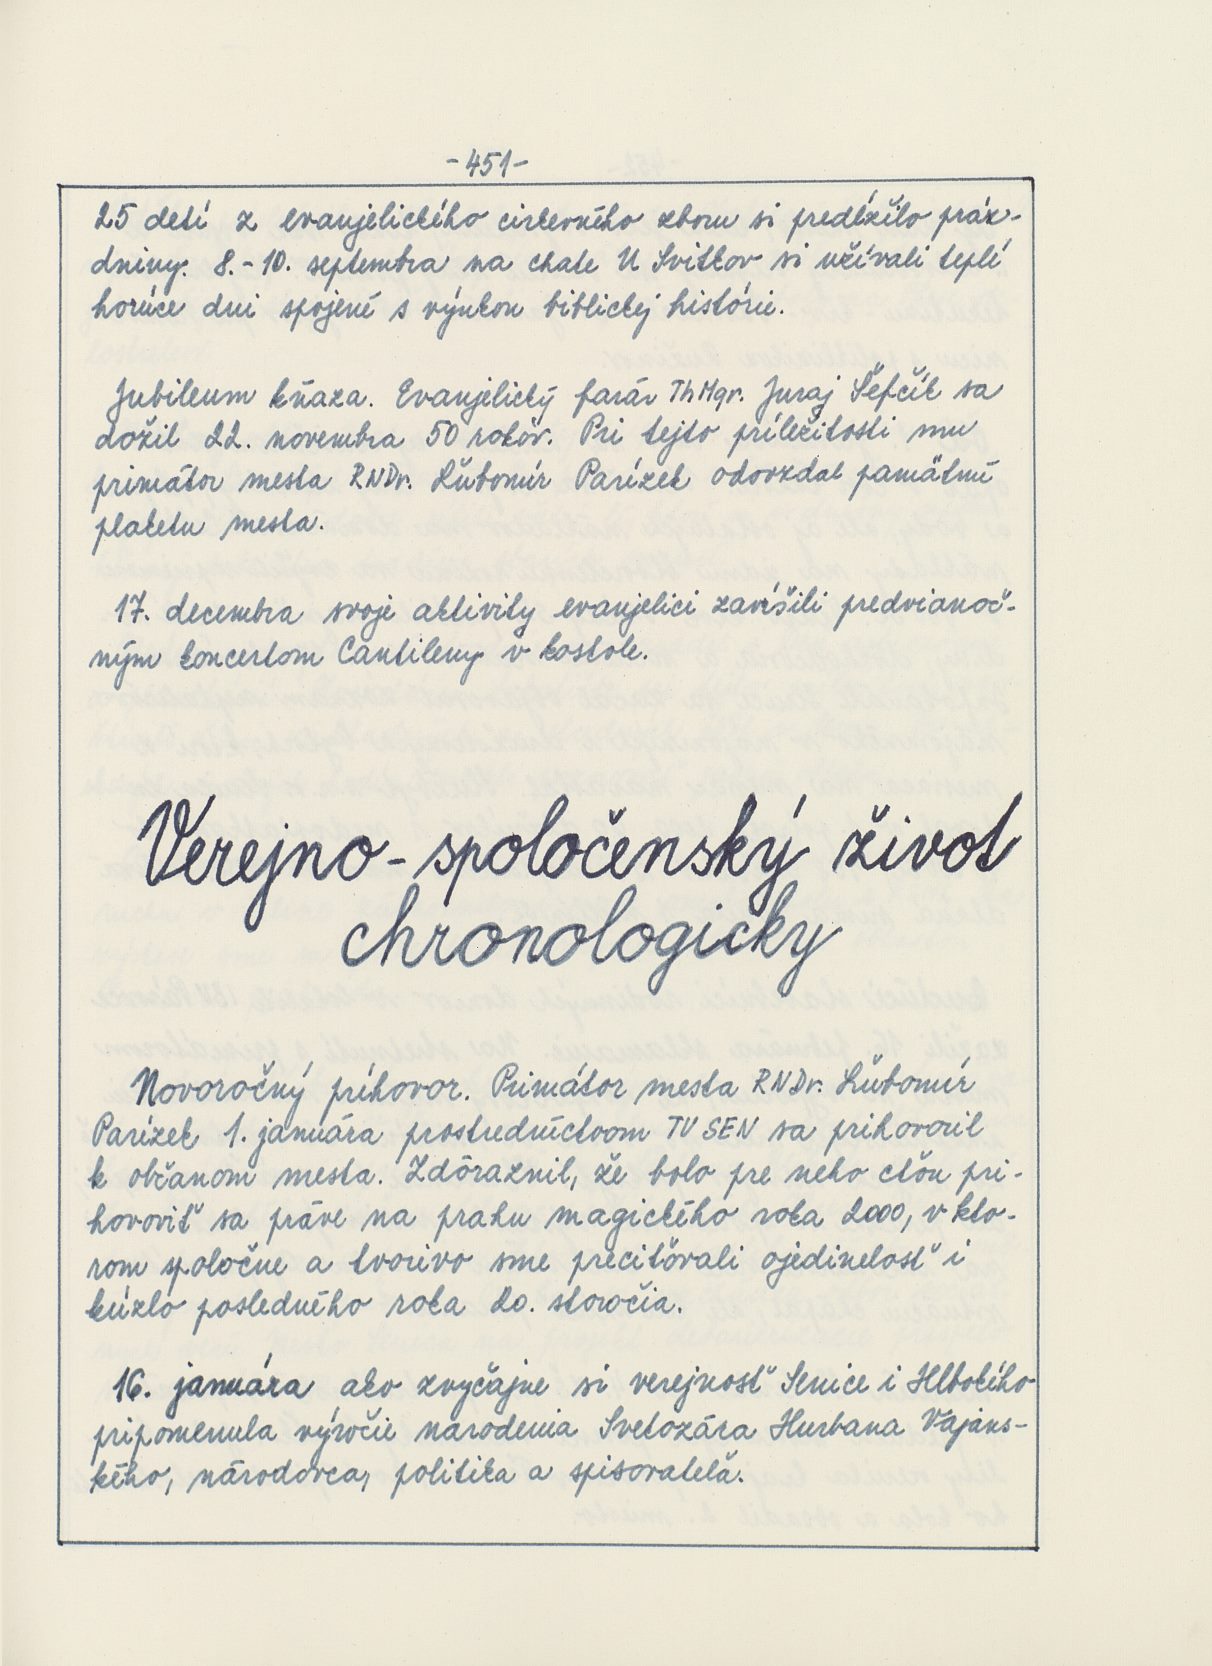 -451-
25 detí z evanjelického cirkevného zboru si predĺžilo práz-
dniny. 8.-10. septembra na chate U Svitkov si užívali teplé
horúce dni spojené s výukou biblickej histórie.
Jubileum kňaza. Evanjelický farár ThMgr. Juraj Šefčík sa
dožil 22. novembra 50 rokov. Pri tejto príležitosti mu
primátor mesta RNDr. Ľubomír Parízek odovzdal pamätnú
plaketu mesta.
17. decembra svoje aktivity evanjelici zavŕšili predvianoč-
ným koncertom Cantileny v kostole.
Verejno-spoločenský život
chronologicky
Novoročný príhovor. Primátor mesta RNDr. Ľubomír
Parízek 1. januára prostredníctvom TV SEN sa prihovoril
k občanom mesta. Zdôraznil, že bolo pre neho cťou pri-
hovoriť sa práve na prahu magického roka 2000, v kto-
rom spoločne a tvorivo sme preciťovali ojedinelosť i
kúzlo posledného roka 20. storočia.
16. januára ako zvyčajne si verejnosť Senice i Hlbokého
pripomenula výročie narodenia Svetozára Hurbana Vajans-
kého, národovca, politika a spisovateľa.